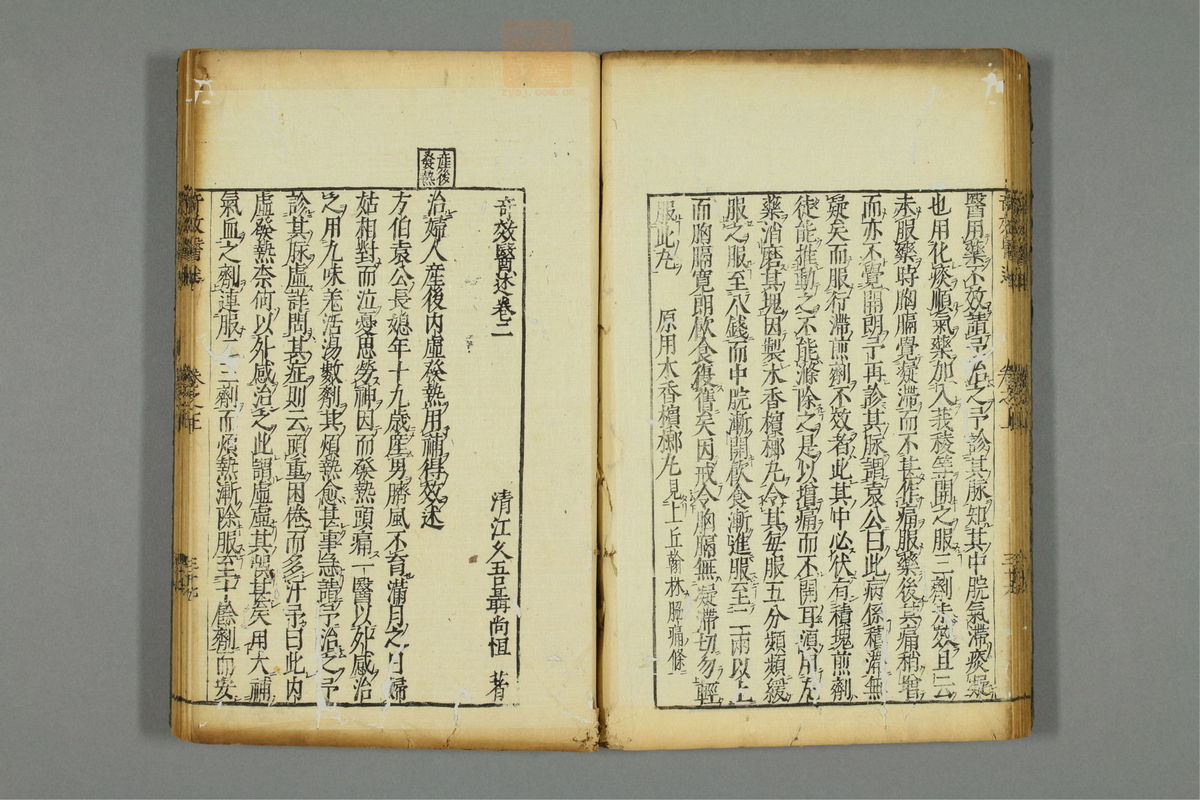 醫用藥不效請予治之予診其脉知其中脘氣滯痰凝
也用化痰順氣藥加入莪稜等開之服三劑未效且云
未服藥時胸膈覺凝滯而不甚作痛服藥後其痛稍增
而亦不覺開朗予再診其脉謂袁公曰此病係積滯無
疑矣而服行滯煎劑不效者此其中必伏有積塊煎劑
徒能推動之不能滌除之是以增痛而不開耳須用丸
藥消磨其塊因製木香檳榔丸令其每服五分頻頻緩
服之服至八錢而中脘漸開飲食漸進服至二兩以上
而胸膈寬朗飲食復舊矣因戒令胸膈無凝滯切勿輕
服此丸 原用木香檳榔丸見上丘翰林腸痛條
奇效醫述卷二
清江久吾聶尚恒 著
產後
發熱
治婦人產後內虛發熱用補得效述
方伯袁公長媳年十九歲產男臍風不育滿月之日婦
姑相對而泣憂思勞神因而發熱頭痛一醫以外感治
之用九味羌活湯數劑其煩熱愈甚事急請予治之予
診其脉虛詳問其症則云頭重困倦而多汗予曰此內
虛發熱柰何以外感治之此謂虛虛其誤甚矣用大補
氣血之劑連服二三劑而煩熱漸除服至十餘劑而安